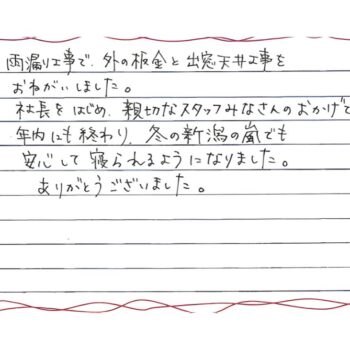 雨漏り工事で、外の板金と出窓天井工事を
おねがいしました。
社長をはじめ、親切なスタッフみなさんのおかげで
年内にも終わり、冬の新潟の嵐でも
安心して寝られるようになりました。
ありがとうございました。